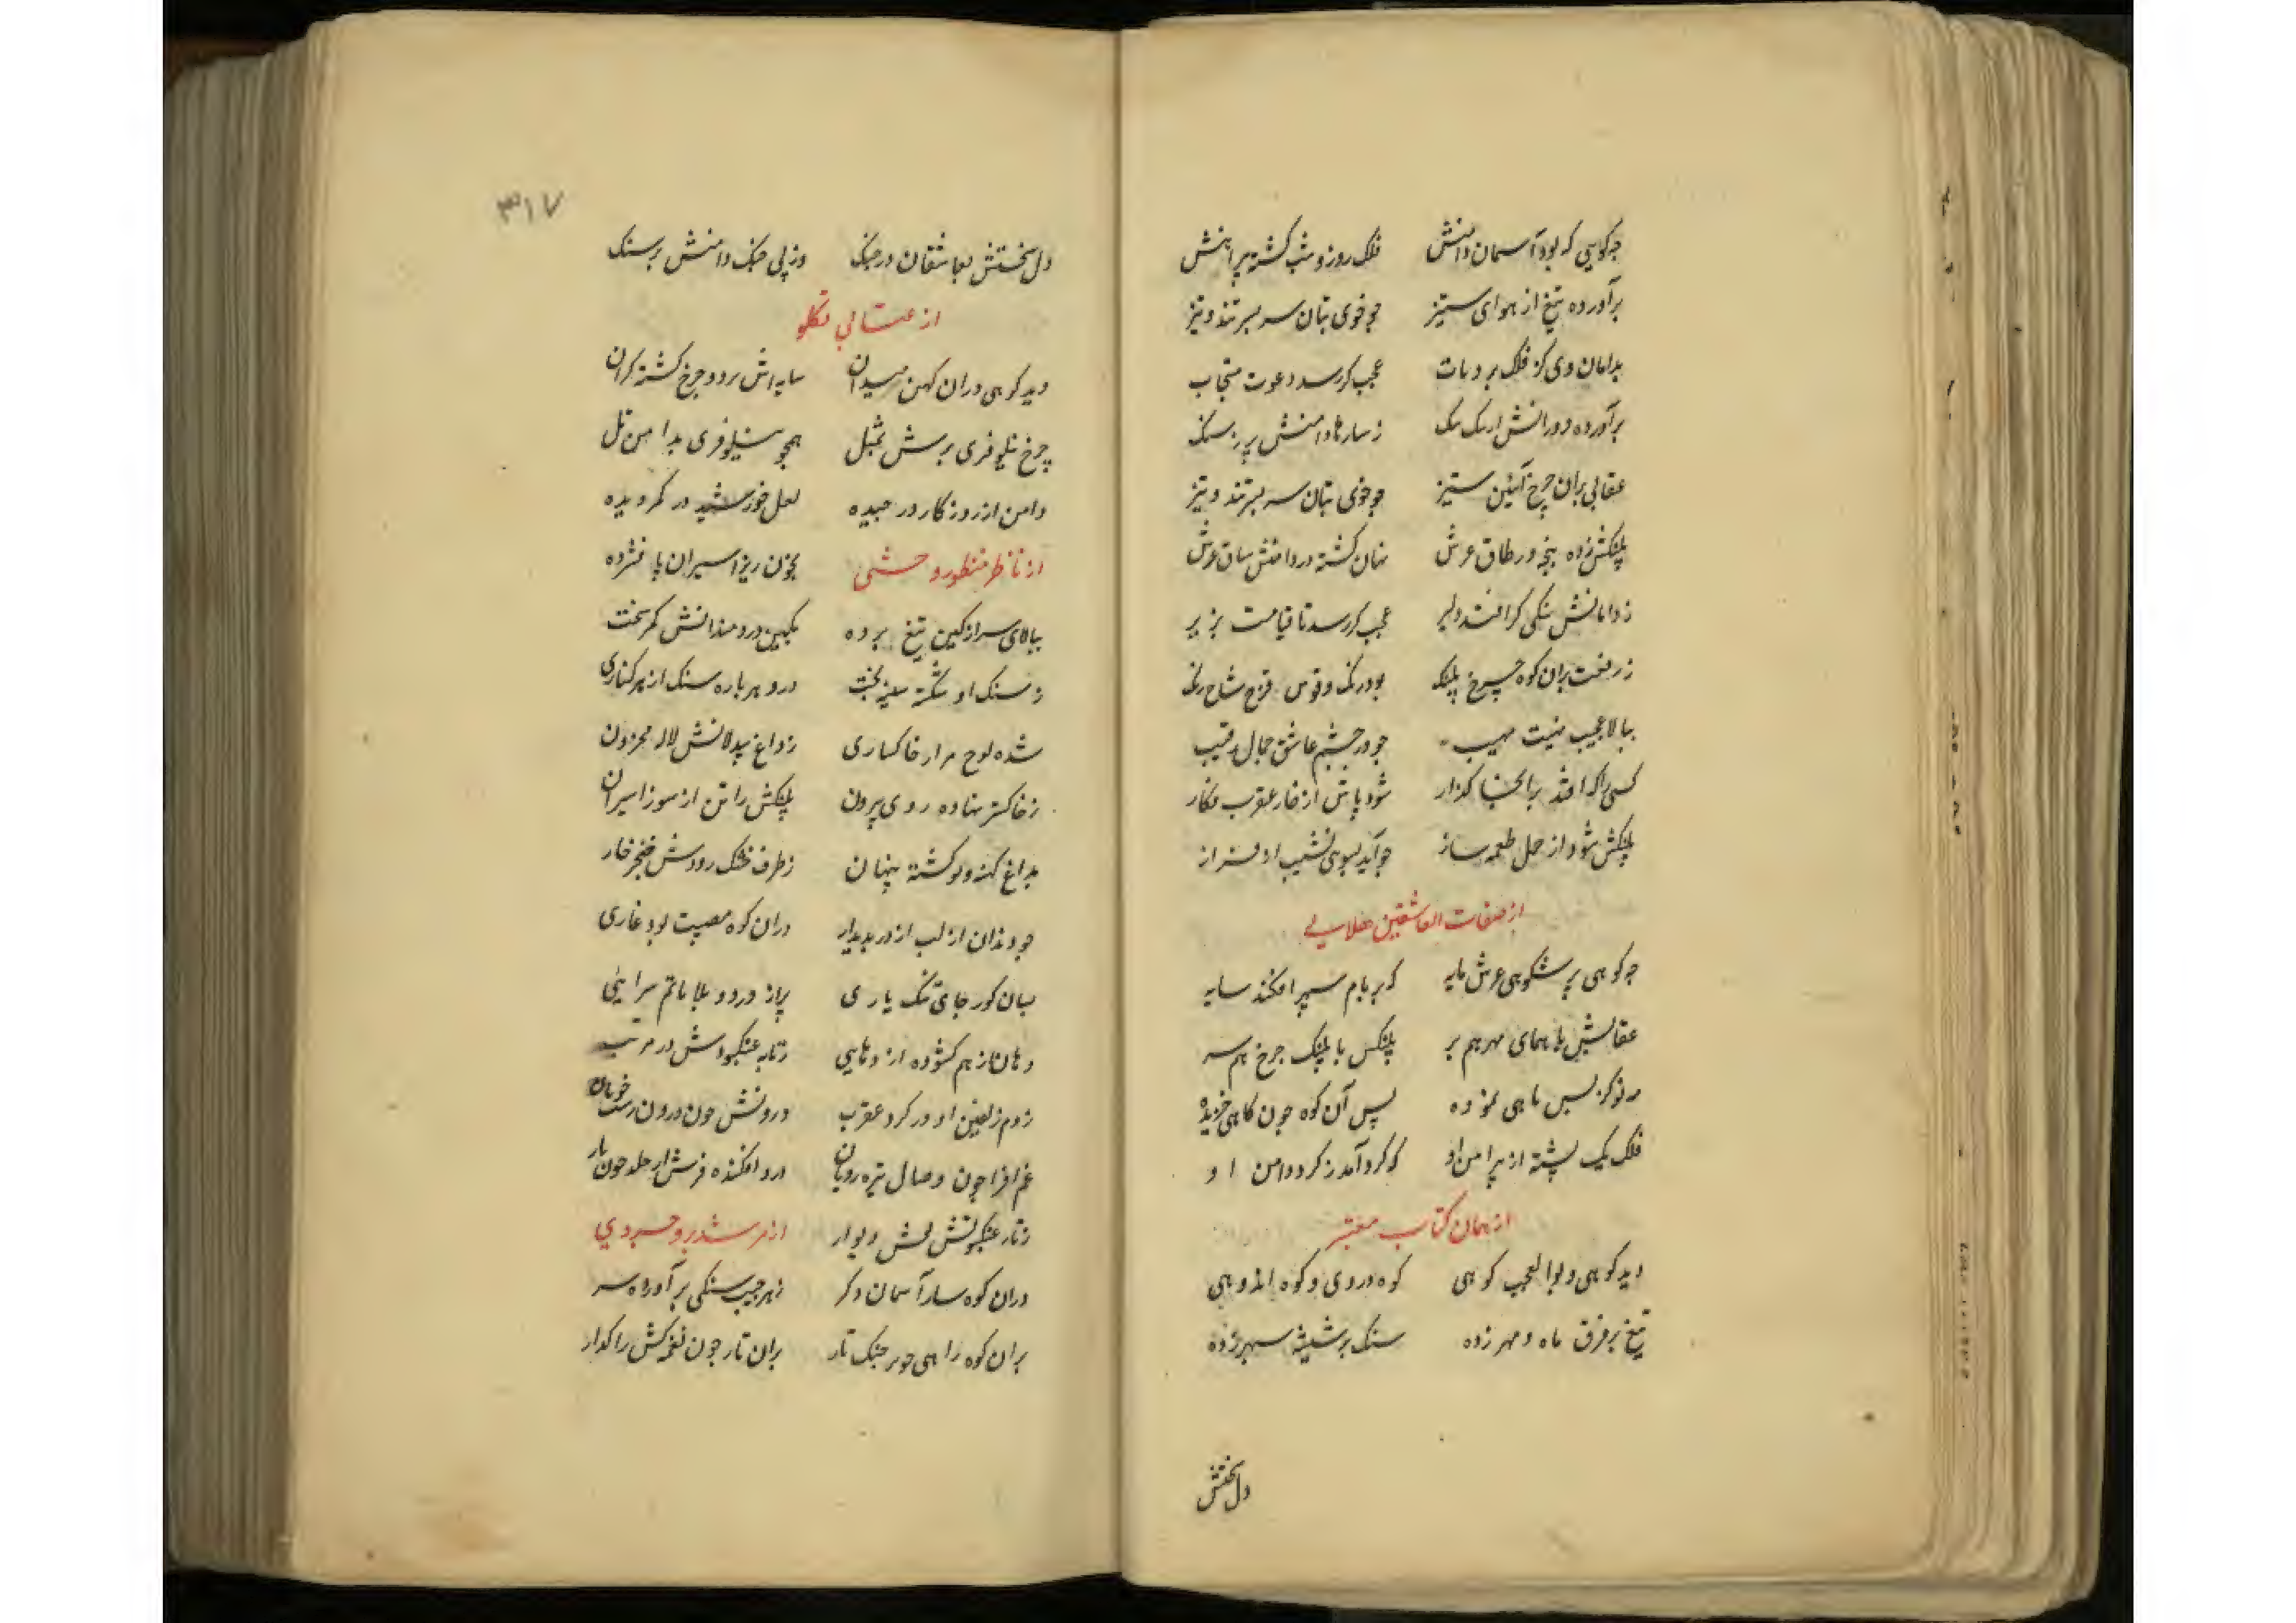 چه کوهی که بود آسمان دامنش فلک روز و شب کشته پیراهنش
برآورده تیغ از هوای ستیز چو خوی بتان سر بسر تند و تیز
بدامان وی کز فلک برد عجب کر رسد دعوت مستجاب
برآورده دورانش دامنش پر ز سنک
عقابی بران چرخ آیین ستیز چو خوی بتان سر بسر تند و تیز
پلنکش زده پنجه در طاق عرش نهان کشته در دامنش ساق عرش
ز دامانش سنکی کر افتد دلیر عجب کر رسد تا قیامت بزیر
ز رفعت بران کوه چرخ پلنک بود رنک و قوس قزح شاخ رنک
ببالا عجیب مهیب چو در چشم عاشق جمال رقیب
کسی را که افتد برانجا کذار شود پاش از خار عقرب فکار
پلنکش شود از حمل طعمه ساز چو آید بسوی نشیب از فراز
از صفات العاشقین هلالی
چه کوهی پر شکوهی عرش پایه که بر بام سپهر افکند سایه
عقابش با همای مهر هم پر پلنکش با پلنک چرخ هم سر
مه نو کز پس ماهی نموده پس آن کوه چون کاهی خزیده
فلک یک پشته از پیرامن او که کرد آمد ز کرد دامن او
از همان کتاب معتبر
دید کوهی و بوالعجب کوهی کوه دردی و کوه اندوهی
تیغ بر فرق ماه و مهر زده سنک بر شیشه سپهر زده
دل سختش
۳۱۷
دل سختش بعاشقان در جنک وز پی جنک دامنش پر سنک
از عتابی تکلو
دید کوهی دران کهن میدان سایه‌اش بر دو چرخ کشته کران
چرخ نیلوفری برش بمثل همچو نیلوفری بدامن تل
دامن از روزکار در چیده لعل خورشید در کمر دیده
از ناظر منظور وحشی بخون ریز اسیران پا فشرده
ببالای سر از کین تیغ برده بکین دردمندانش کمر سخت
ز سنک او شکسته شیشه بخت درو هر پاره سنک از هر کناری
شده لوح مزار خاکساری ز داغ بیدلانش لاله محزون
ز خاکستر نهاده روی بیرون پلنکش را تن از سوز اسیران
بداغ کهنه و نو کشته پنهان ز طرف خشک رودش خنجر خار
چو دندان از لب اژدر پدیدار دران کوه مصیبت بود غاری
بسان کور جای تنک یاری پر از درد و بلا ماتم سرایی
دهان از هم کشوده اژدهایی ز تار عنکبوتش در مرتب
ز دم زلفین او در کرد عقرب درونش چون درون زشت خویان
غم افزا چون وصال تیره رویان درو افکنده فرش از جلد چون مار
ز تار عنکبوتش نقش دیوار از مرشد بروجردی
دران کوهسار آسمان دکر ز هر جیب سنکی برآورده سر
بران کوه راهی چو بر چنک تار بران تار چون نغمه‌کش را کذار